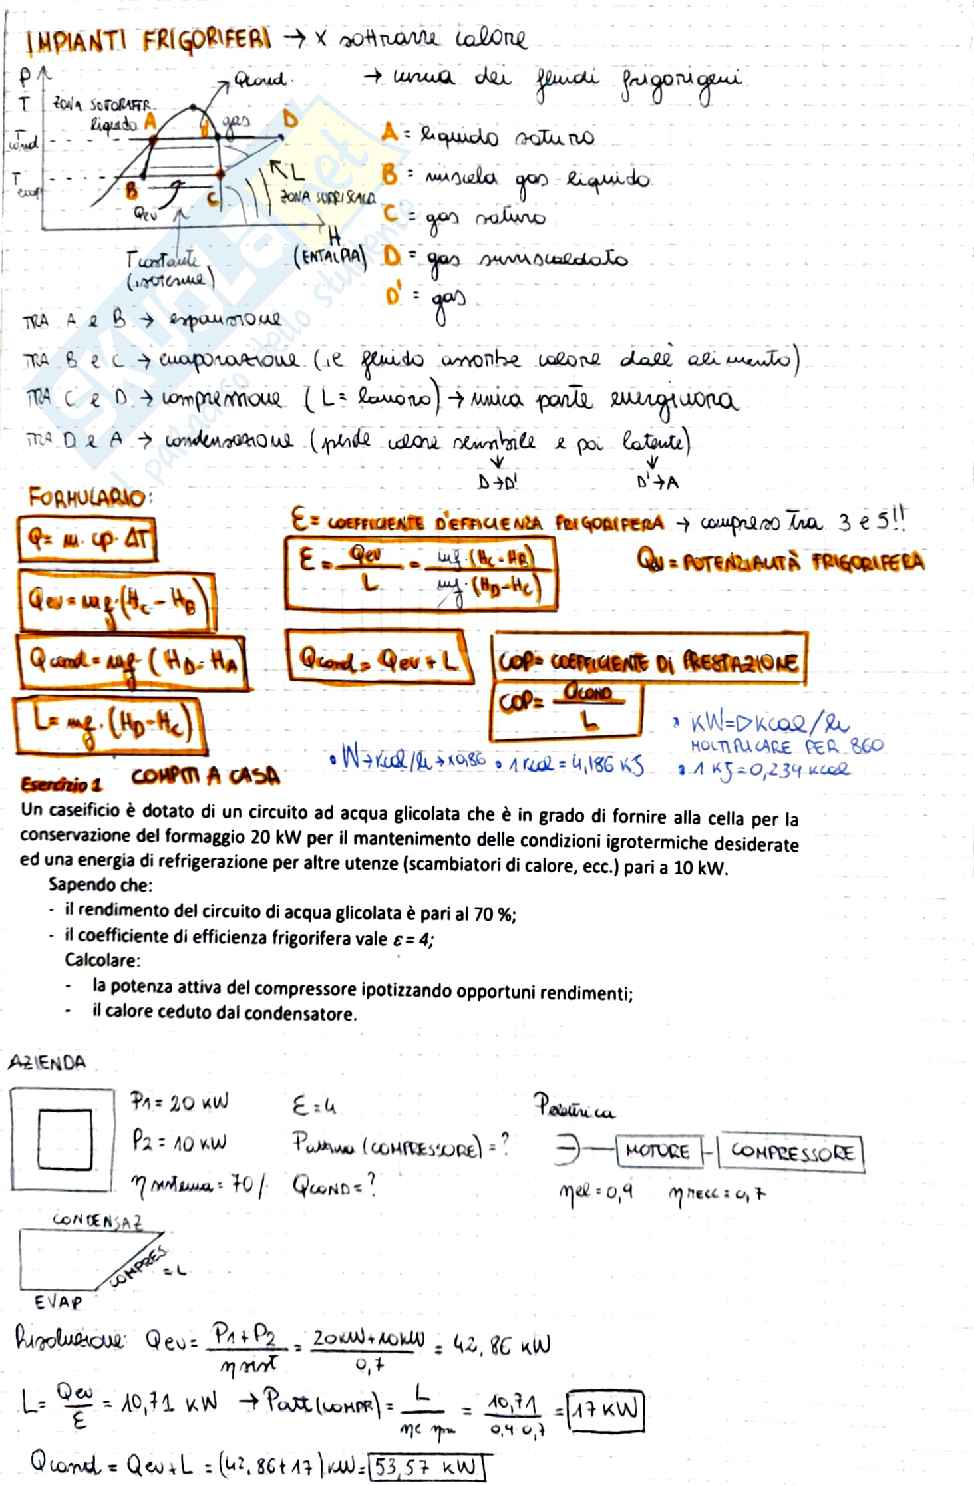 IMPIANTI FRIGORIFERI → x sottrarre calore
→ usura dei fluidi frigorigeni
P
T
Qcond.
ZONA SOTORAFFR.
liquido
A
gas
D
Tcond
L
Tevap
B
C
Qev
ZONA SURRISCALD
H
(ENTALPIA)
T costante
(isoterme)
A = liquido saturo
B = miscela gas liquido
C = gas saturo
D = gas surriscaldato
D' = gas
TRA A e B → espansione
TRA B e C → evaporazione (il fluido assorbe calore dall'alimento)
TRA C e D → compressione (L = lavoro) → unica parte energivora
TRA D e A → condensazione (perde calore sensibile e poi latente)
D→D' D'→A
FORMULARIO:
Q = m · cp · ΔT
Ɛ = COEFFICIENTE D'EFFICIENZA FRIGORIFERA → compreso tra 3 e 5!!
Ɛ = Qev/L = mf·(Hc-HB)/mf·(HD-Hc)
Qev = POTENZIALITÀ FRIGORIFERA
Qev = mf·(Hc - HB)
Qcond = mf·(HD - HA
Qcond = Qev + L
COP = COEFFICIENTE DI PRESTAZIONE
COP = QCOND/L
L = mf·(HD-Hc)
• KW=▷kcal/h
MOLTIPLICARE PER 860
• W→kcal/h→x0,86 • 1 kcal = 4,186 KJ • 1 KJ = 0,239 kcal
Esercizio 1 COMPITI A CASA
Un caseificio è dotato di un circuito ad acqua glicolata che è in grado di fornire alla cella per la
conservazione del formaggio 20 kW per il mantenimento delle condizioni igrotermiche desiderate
ed una energia di refrigerazione per altre utenze (scambiatori di calore, ecc.) pari a 10 kW.
Sapendo che:
- il rendimento del circuito di acqua glicolata è pari al 70 %;
- il coefficiente di efficienza frigorifera vale ε = 4;
Calcolare:
- la potenza attiva del compressore ipotizzando opportuni rendimenti;
- il calore ceduto dal condensatore.
AZIENDA
P1 = 20 KW Ɛ = 4 Pelettrica
P2 = 10 KW Pattiva (COMPRESSORE) = ? MOTORE COMPRESSORE
η sistema = 70% QCOND = ? ηel = 0,9 ηmecc = 0,7
CONDENSAZ
COMPRES
= L
EVAP
Risoluzione: Qev = P1+P2/η sist = 20KW+10KW/0,7 = 42,86 KW
L = Qev/Ɛ = 10,71 KW → Patt(COMPR) = L/ηe ηm = 10,71/0,9 0,7 = 17 KW
Qcond = Qev+L = (42,86+17) KW = 53,57 KW